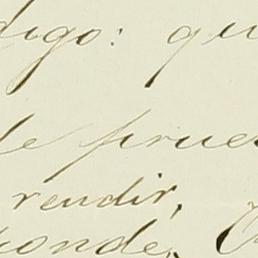 digo: qu
de prue
rendir,
ponde,